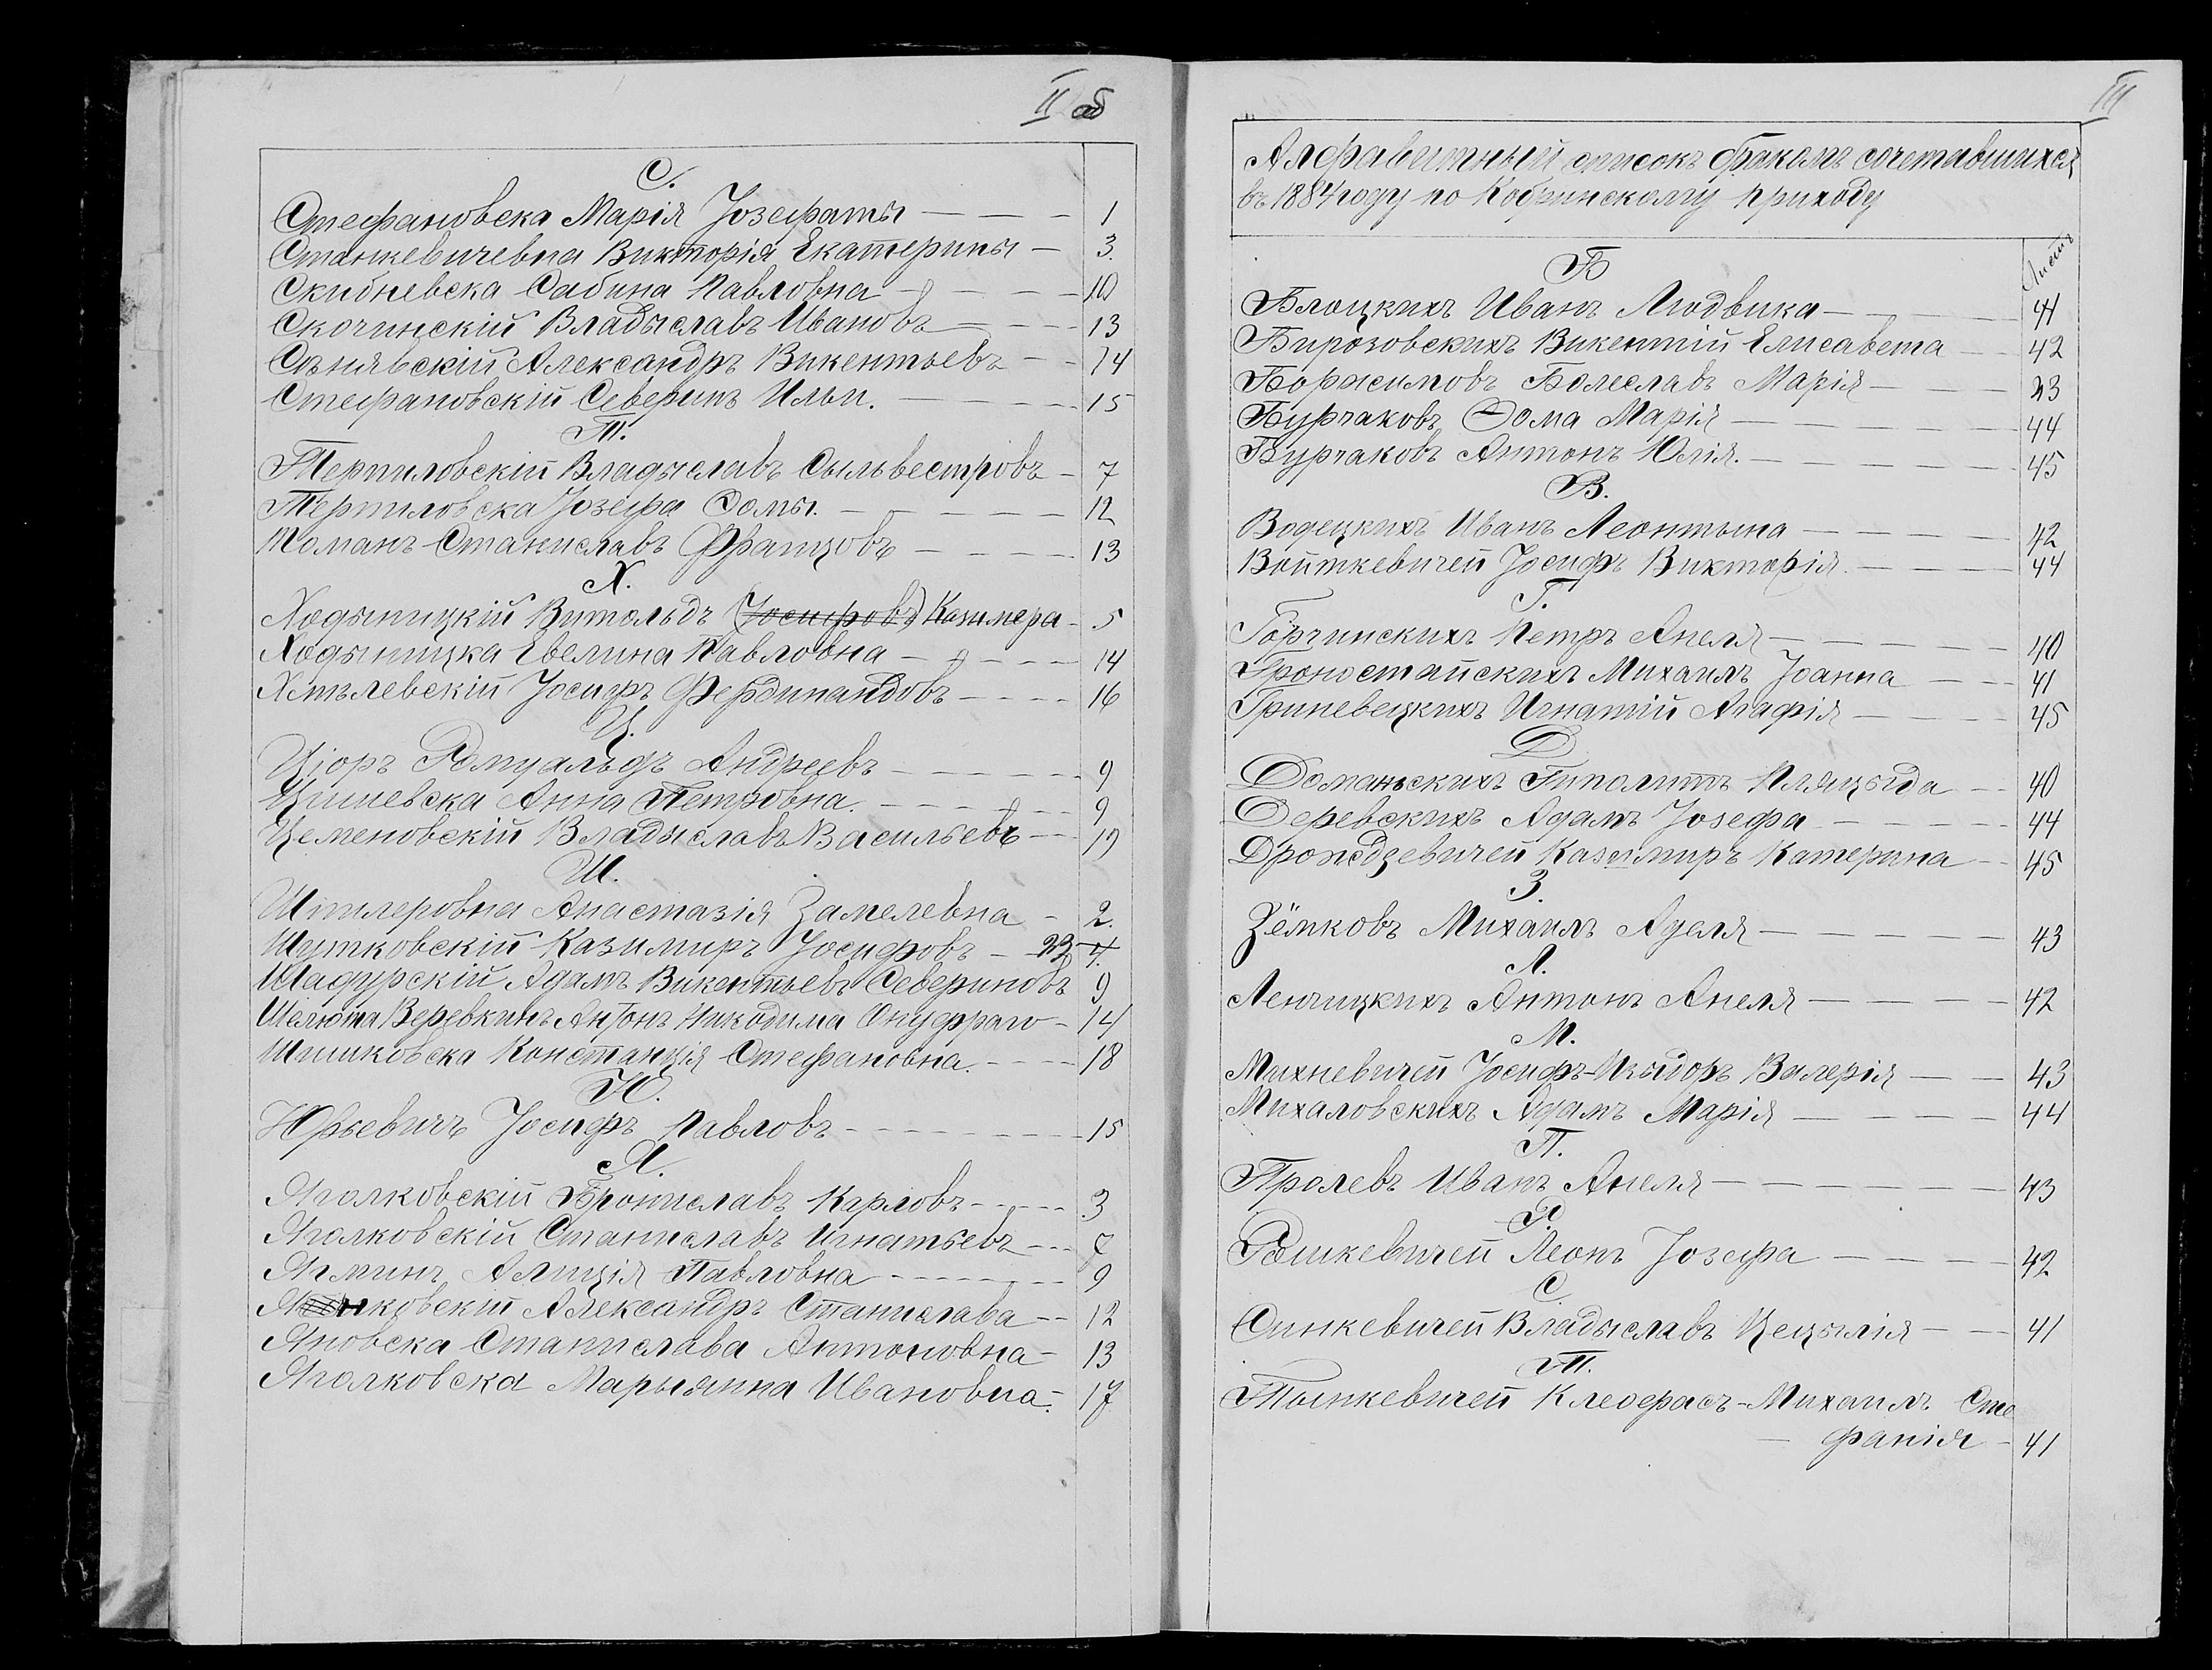 II об
С.
Стефановска Марія Іозефаты — — — 1
Станкевичевна Викторія Екатерины — 3.
Скибневска Сабина Павловна — — — 10
Скочинскій Владыславъ Ивановъ — — — 13
Сѣнявскій Александръ Викентьевъ — — 14
Стефановскій Северинъ Ильи. — — — 15
Т.
Терпиловскій Владыславъ Сыльвестровъ — 7
Терпиловска Іозефа Ѳомы. — — — 12
Томанъ Станиславъ Францовъ — — — 13
Х.
Ходыницкій Витольдъ (Іосифовъ) Казимера — 5
Ходыницка Евелина Павловна — — — 14
Хмѣлевскій Іосифъ Фердинандовъ — — — 16
Ц.
Ціоръ Ромуальдъ Андреевъ — — — 9
Цишевска Анна Петровна. — — — 9
Цеменовскій Владыславъ Васильевъ — —
Ш.
Шпилеровна Анастазія Замелевна — 2.
Шутковскій Казимиръ Іосифовъ — 23 4.
Шадурскій Адамъ Викентьевъ Севериновъ 9
Шелюта Веревкинъ Антонъ Никодима Онуфраго — 14
Шишковска Констанція Стефановна. — — — 18
Ю.
Юрьевичъ Іосифъ Павловъ — — — 15
Я.
Яголковскій Брониславъ Карловъ — — — 3
Яголковскій Станиславъ Игнатьевъ — — — 7
Ягминъ Алиція Павловна — — — 9
Янковскій Александръ Станислава — — 12
Яновска Станислава Антоновна — 13
Яголковска Марыянна Ивановна. — 17
III
Алфавитный списокъ бракомъ сочетавшихся
въ 1884 году по Кобринскому приходу
Листъ
Б
Блоцкихъ Иванъ Людвика — — — 41
Бирозовскихъ Викентій Елисавета — — 42
Боржимовъ Болеславъ Марія — — — 23
Бурчаковъ Ѳома Марія — — — 44
Бурчаковъ Антонъ Юлія. — — — 45
В.
Водецкихъ Иванъ Леонтына — — — 42
Войткевичей Іосифъ Викторія. — — — 44
Г.
Горчинскихъ Петръ Анеля — — — 40
Гроностайскихъ Михаилъ Іоанна — — 41
Гриневецкихъ Игнатій Агафія — — — 45
Д
Доманьскихъ Гиполитъ Пляцыда — — 40
Деревскихъ Адамъ Іозефа — — — 44
Дрождзевичей Казимиръ Катерина — — 45
З.
Зёмковъ Михаилъ Аделя — — — 43
Л.
Ленчицкихъ Антонъ Анеля — — — 42
М.
Михневичей Іосифъ-Изыдоръ Валерія — — 43
Михаловскихъ Адамъ Марія — — — 44
П.
Пролевъ Иванъ Анеля — — — 43
Р.
Рошкевичей Леонъ Іозефа — — — 42
С.
Синкевичей Владыславъ Цецылія — — 41
Т.
Тынкевичей Клеофасъ-Михаилъ Сте
— фанія — 41